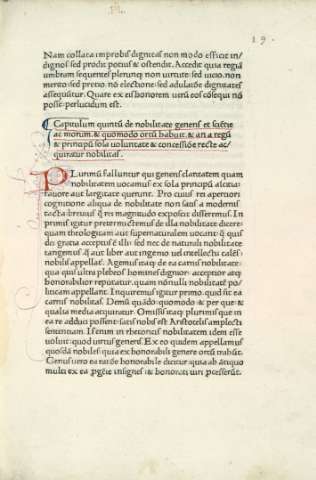 19.
Nam collata improbis dignitas non modo efficit in/
dignos sed prodit potius & ostendit. Accedit quia regiā
umbram sequentes plerunq; non uirtute: sed uicio. non
merito: sed precio. nō electione: sed adulatiōe dignitates
assequūtur. Quare ex eis honorem uerū eōs cōsequi nō
posse: perlucidum est.
Capitulum quintū de nobilitate generis et stirpe
ac morum. & quomodo ortū habuit. & an a regū
& principū sola uoluntate & concessiōe recte ac/
quiratur nobilitas.
PLurimū falluntur qui generis claritatem quam
nobilitatem uocamus ex sola principū
fauore aut largitate querunt. Pro cuius rei apertiori
cognitione aliqua de nobilitate non satis a modernis
tacta breuius q̄ rei magnitudo exposcat disseremus. In
primis igitur pretermictemus de illa nobilitate dicere:
quam theologiam aut supernaturalem uocant: q̄ quis
dis gratia acceptus ē illis: sed nec de naturali nobilitate
tangemus: q̄ aut liber aut ingenio uel intellectu cales
nobilis appellaſ. Agemus itaq; de ea ciuili nobilitate:
qua quis ultra plebeos homines dignior: acceptior atq;
honorabilior reputatur. quam nōnulli nobilitatē po/
liticam appellant. Inquiremus igitur primo. quid sit ea
ciuilis nobilitas. Demū quādo: quomodo & per que: &
qualia media atquiratur. Omissis itaq; plurimis que in
ea re adduci possent: satis nobis est Aristotelis amplecti
sententiam. Is enim in rhetoricis nobilitatem idem esse
uoluit: quod uirtus generis. Ex eo quidem appellamus
quosdā nobiles: quia ex honorabili genere ortū trahūt.
Genus uero ea ratiōe honorabile dicitur: quia ab ātiquo
multi ex ea pgēie insignes & honorati uiri pcesserūt.